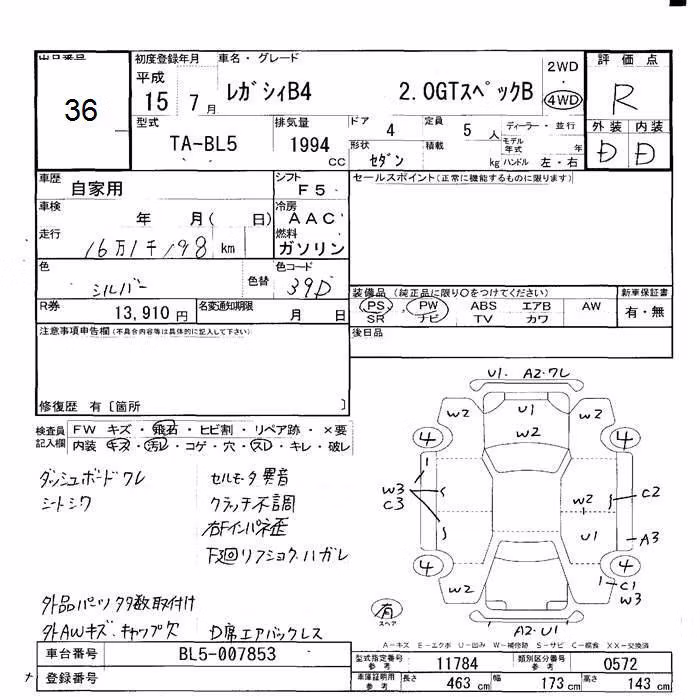 出品番号 初度登録年月 車名・グレード 2WD 評価点
36 平成 15 7月 レガシィB4 2.0GTスペックB ・ 4WD R
型式 排気量 ドア 4 定員 5人 ディーラー・並行 外装 内装
TA-BL5 1994 cc 形状 セダン 積載 kg モデル年式 年 ハンドル 左・右 D D
車歴 自家用 シフト F5 セールスポイント(正常に機能するものに限ります)
車検 年 月( 日) 冷房 AAC
走行 16万1千198 km 燃料 ガソリン
色 シルバー 色替 色コード 39D
装備品 (純正品に限り○をつけてください) 新車保証書
PS ・ PW ABS エアB AW 有・無
SR ナビ TV カワ
R券 13,910円 名変通知期限 月 日
後日品
注意事項申告欄(不具合内容等は具体的に記入して下さい)
修復歴 有〔箇所 〕
検査員記入欄 FW キズ・飛石・ヒビ割・リペア跡・×要
内装 キズ・汚レ・コゲ・穴・スレ・キレ・破レ
ダッシュボードワレ セルモータ異音
シートシワ クラッチ不調
右Fインパネ歪
下廻リフショク、ハガレ
外品パーツ多数取付け
外AWキズ、キャップ欠 D席エアバックレス
U1・A2・ワレ
W2 U1 W2
W2
4 4
W3 C3 W2 C2
U1 A3
4 4
W2 W2 C1 W3
有 スペア
A2・U1
A-キズ E-エクボ U-凹み W-補修跡 S-サビ C-腐食 XX-交換済
車台番号 BL5-007853
登録番号
型式指定番号 参考 11784 類別区分番号 参考 0572
車庫証明用 参考 長さ 463 cm 幅 173 cm 高さ 143 cm